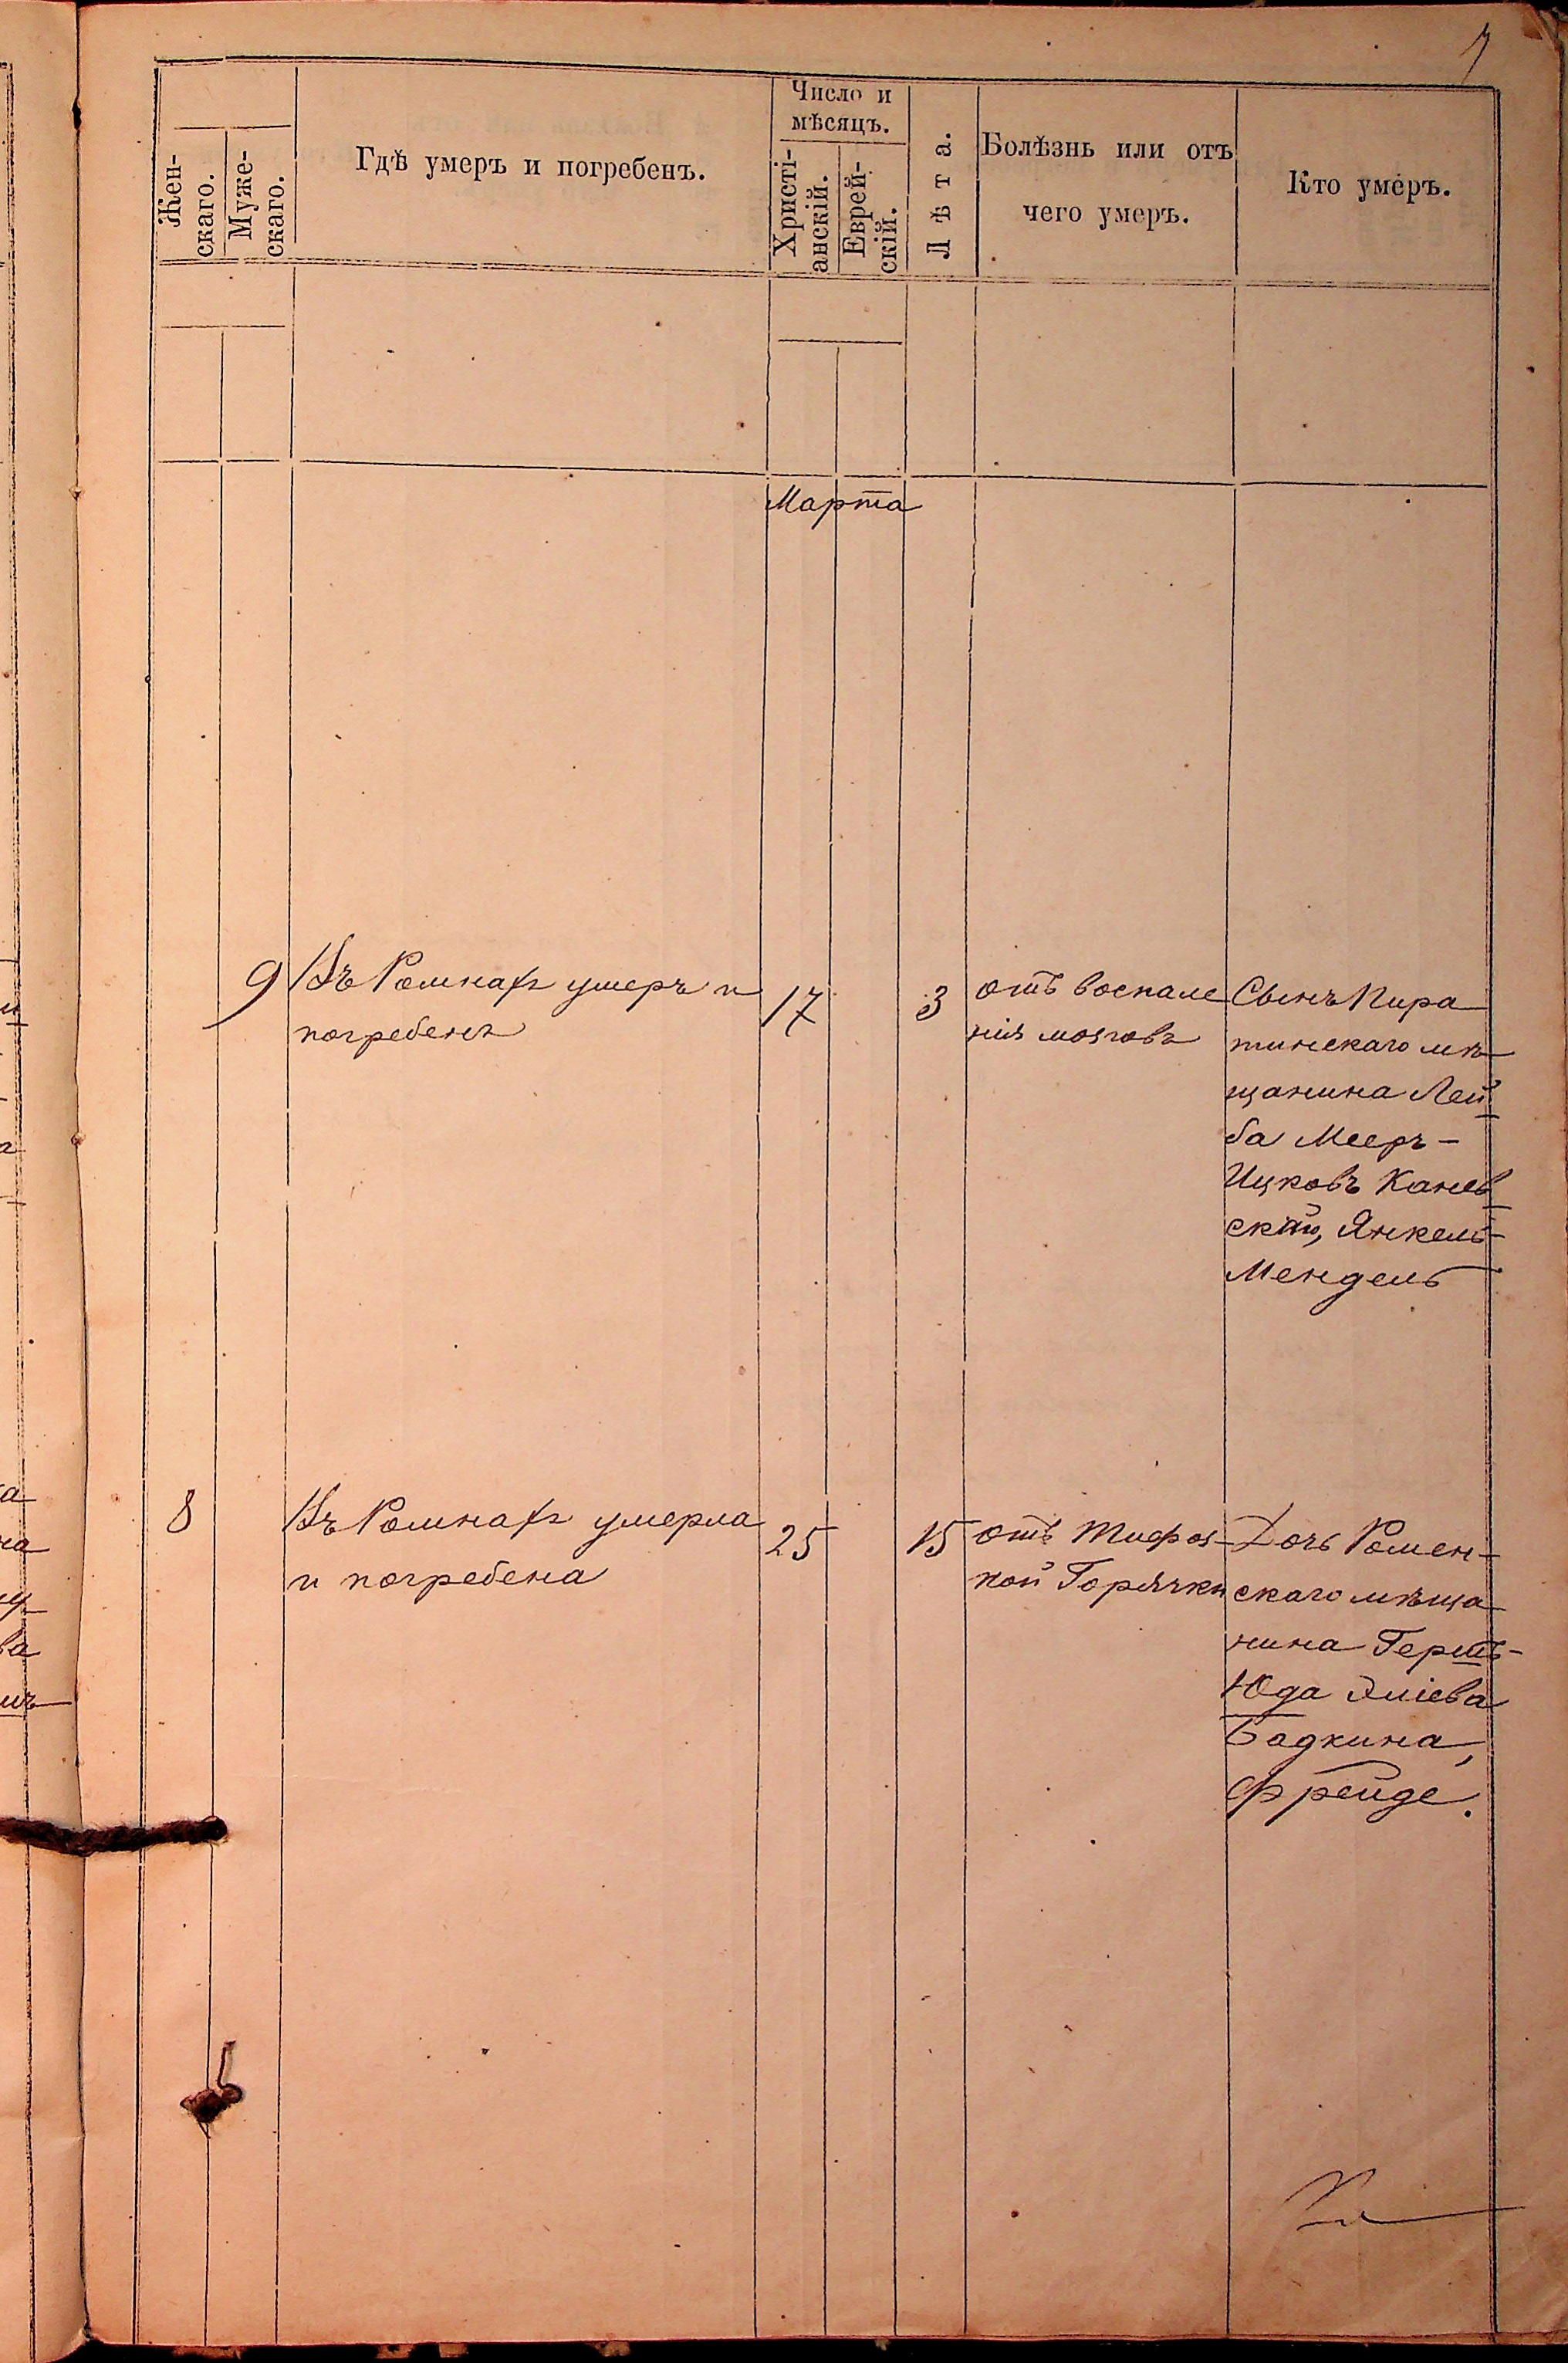 7
Жен-
скаго.
Муже-
скаго.
Гдѣ умеръ и погребенъ.
Число и
мѣсяцъ.
Христі-
анскій.
Еврей-
скій.
Лѣта.
Болѣзнь или отъ
чего умеръ.
Кто умеръ.
Марта
9
Въ Ромнахъ умеръ и
погребенъ
17
3
отъ воспале
нія мозговъ
Сынъ Пира
тинскаго мѣ
щанина Лей
ба Мееръ-
Ицковъ Канев
скаго, Янкель-
Мендель
8
Въ Ромнахъ умерла
и погребена
25
15
отъ Тифоз-
ной Горячки
Дочь Ромен-
скаго мѣща
нина Гершъ-
Юда Эліева
Бадкина,
Фрейде.